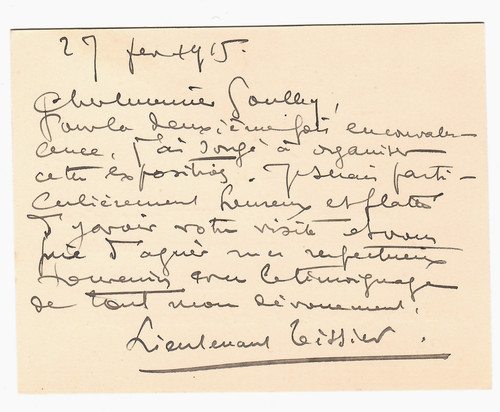 27 fev 1915.
Cher Monsieur Goulley,
Pour la deuxième fois en convales-
cence, j'ai songé à organiser
cette exposition. Je serais parti-
culièrement heureux et flatté
d'y avoir votre visite et vous
prie d'agréer mes respectueux
souvenirs avec le témoignage
de tout mon dévouement.
Lieutenant Tissier.